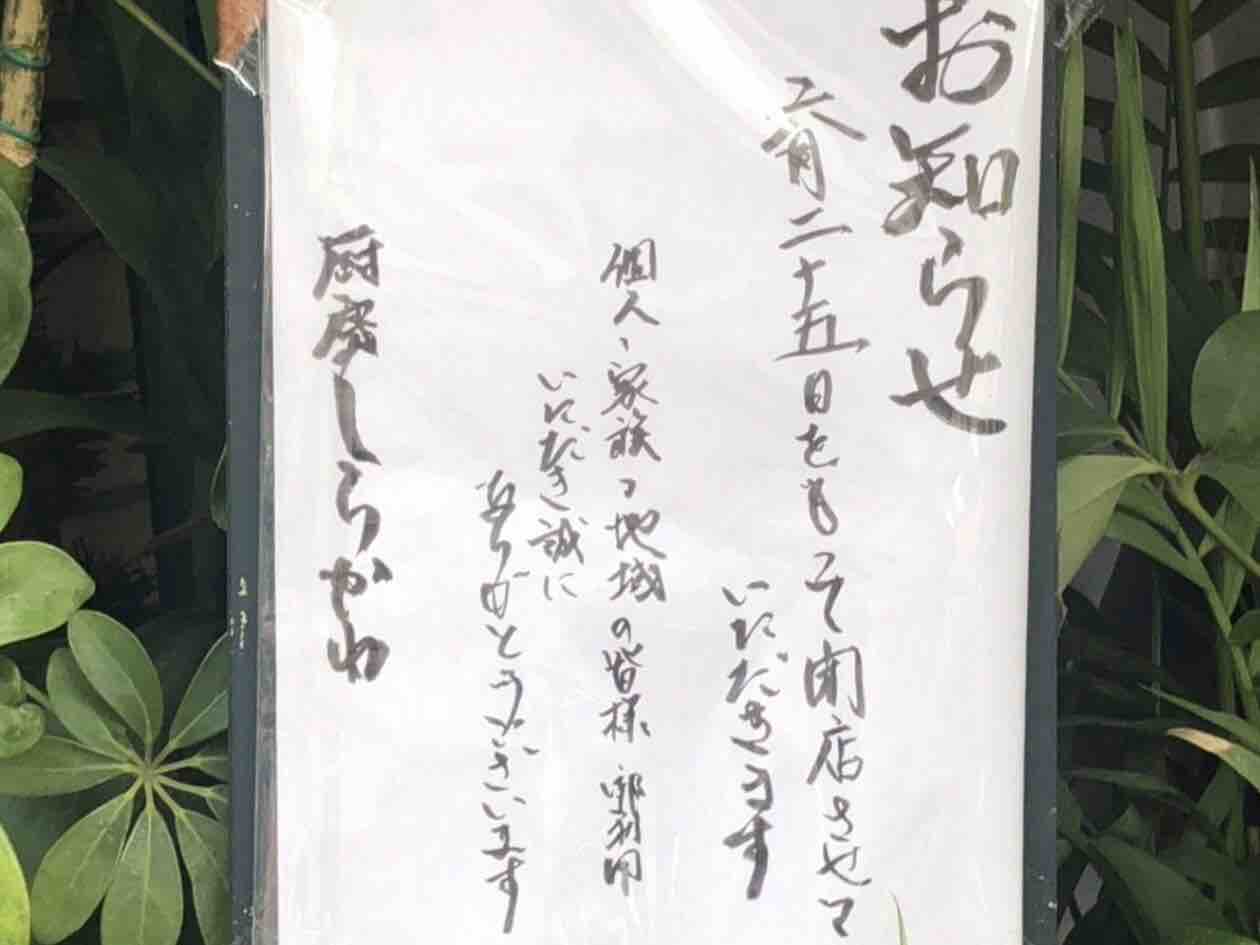 お知らせ
六月二十五日をもって閉店させて
いただきます
個人、家族、地域の皆様、御利用
いただき誠に
ありがとうございます
厨房しらかわ